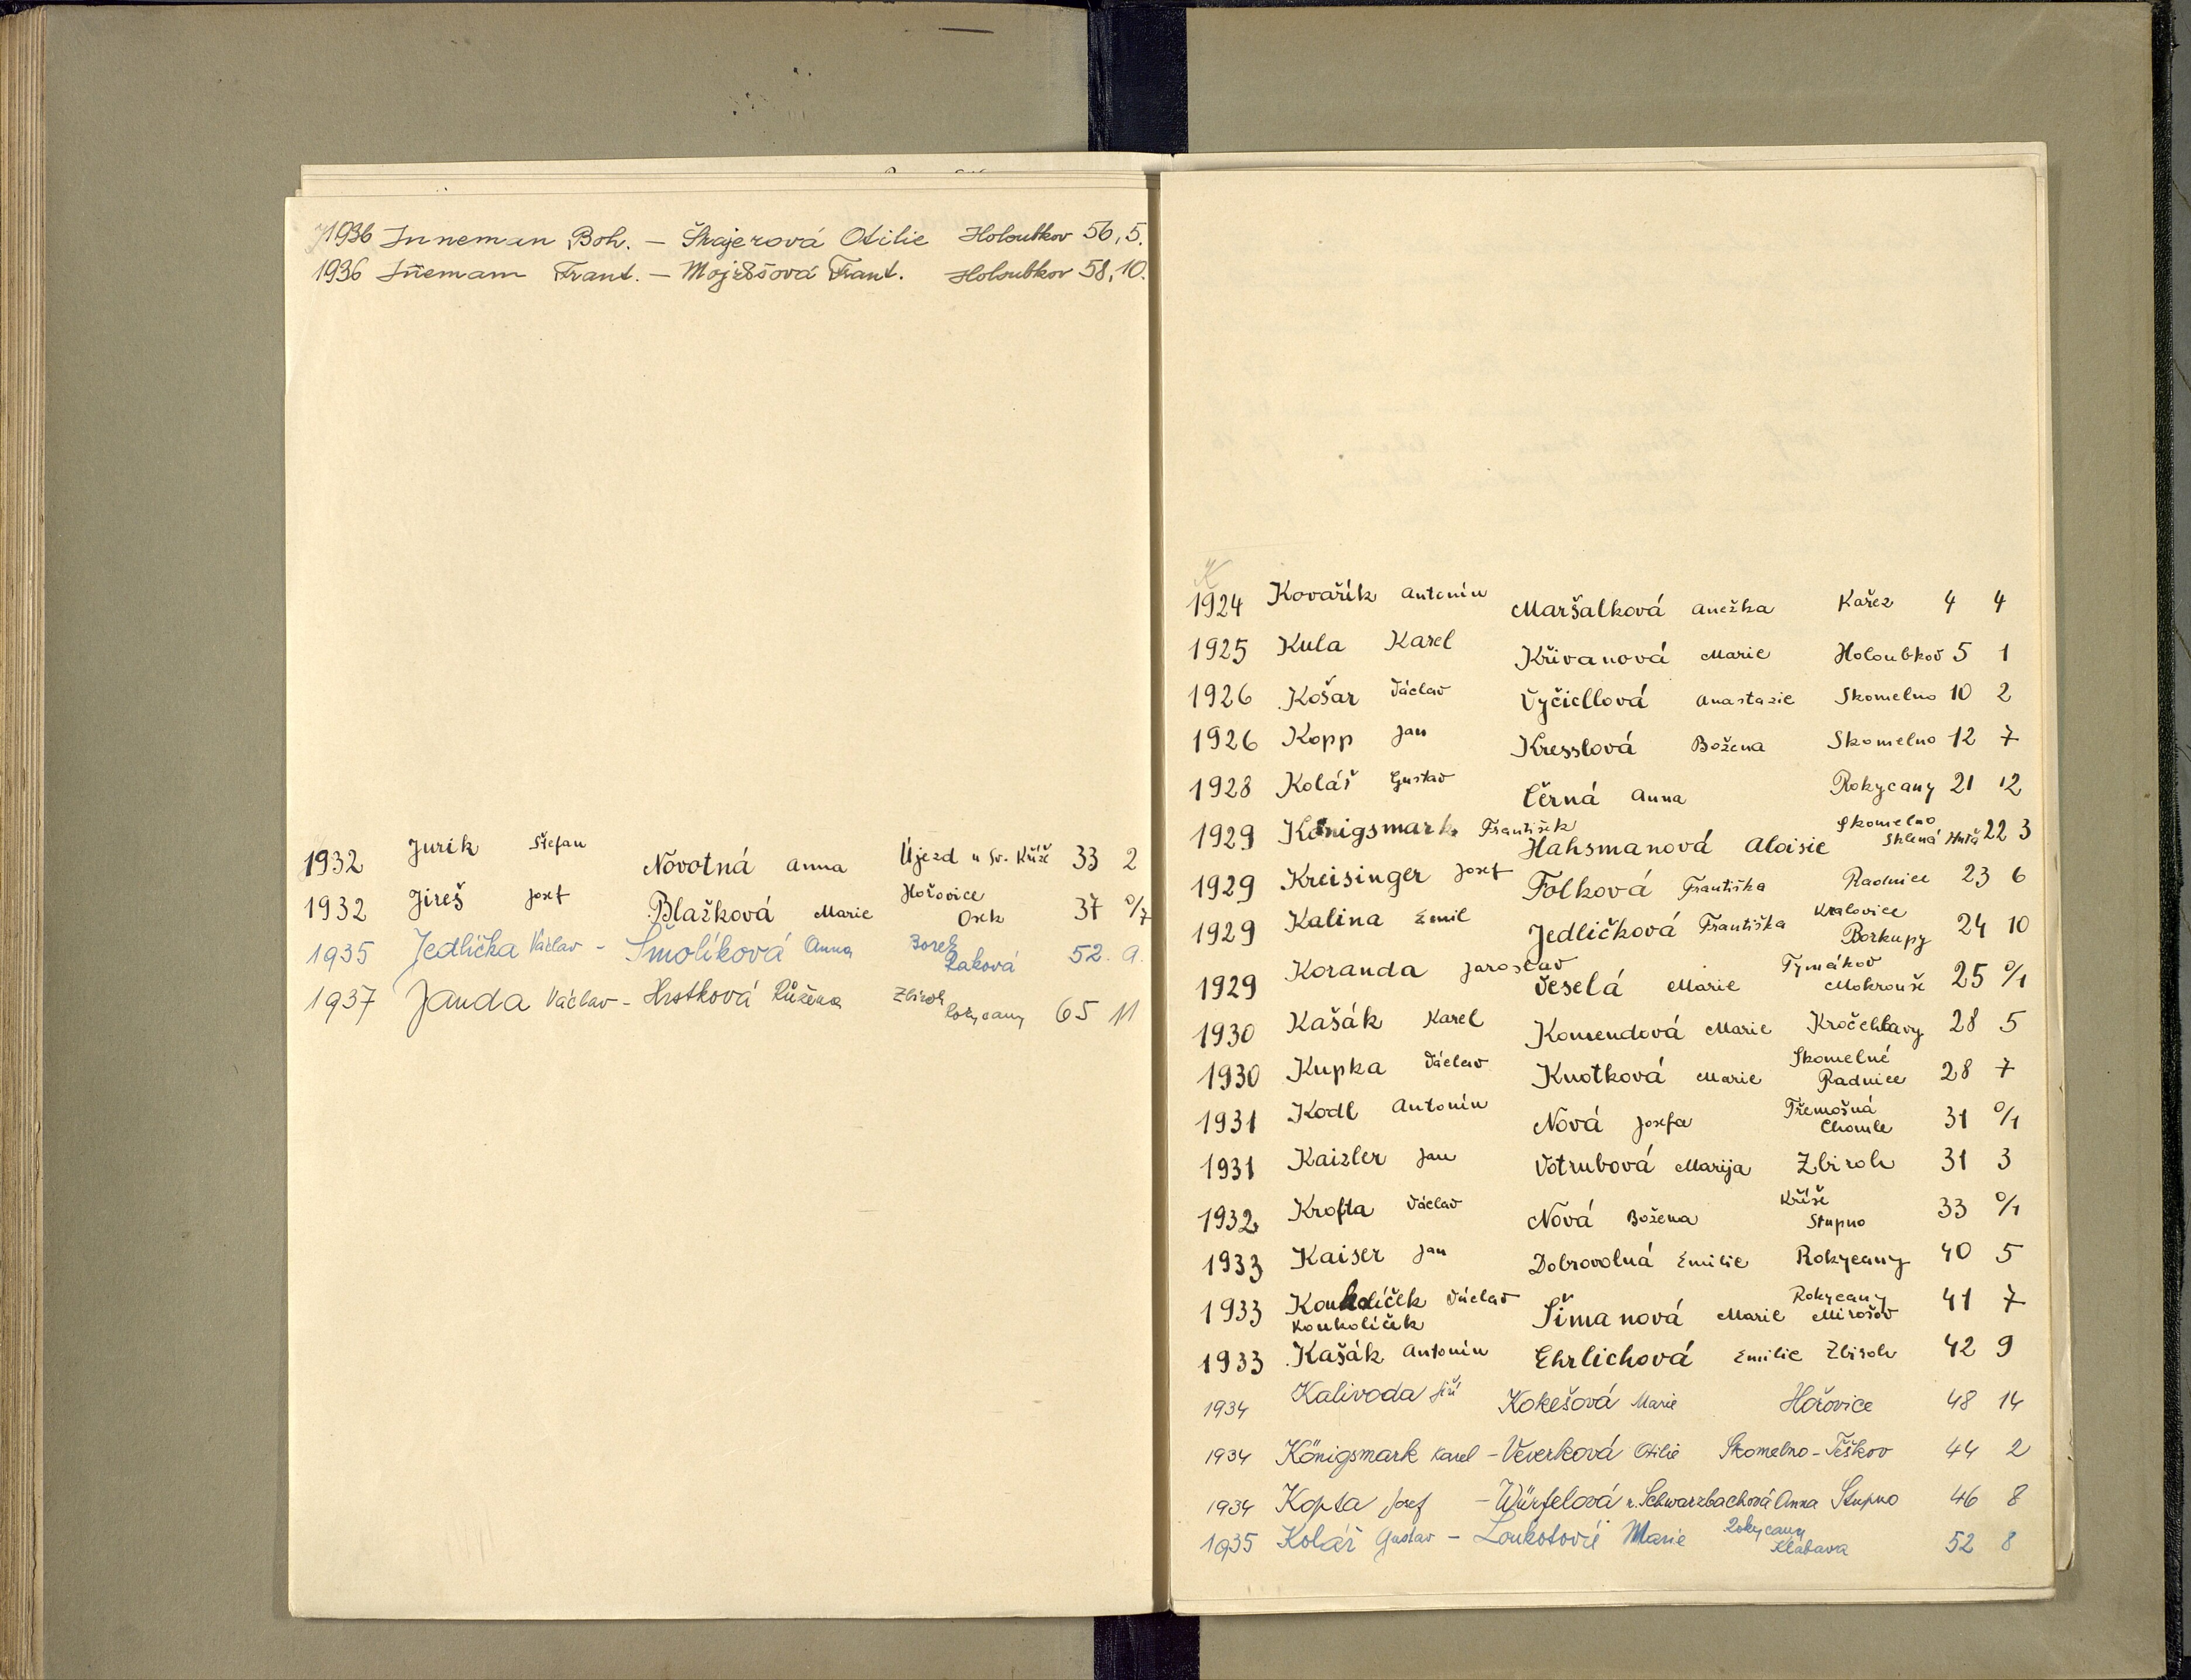 1936 Inneman Boh. – Štajerová Otilie Holoubkov 56, 5.
1936 Iňemam Frant. – Mojžíšová Frant. Holoubkov 58, 10.
1932 Jurik Štefan Novotná Anna Újezd u Sv. Kříže 33 2
1932 Jireš Josef Blažková Marie Hořovice Osek 37 %7
1935 Jedlička Václav – Smolíková Anna Borek Raková 52. 9.
1937 Janda Václav – Hrstková Růžena Zbiroh Rokycany 65 11
K
1924 Kovařík Antonín Maršalková Anežka Kařez 4 4
1925 Kula Karel Křivanová Marie Holoubkov 5 1
1926 Košar Václav Vyčicllová Anastazie Skomelno 10 2
1926 Kopp Jan Kresslová Božena Skomelno 12 7
1928 Kolář Gustav Černá Anna Rokycany 21 12
1929 Königsmark František Hahsmanová Aloisie Skomelno Sklená Huťa 22 3
1929 Kreisinger Josef Folková Františka Radnice 23 6
1929 Kalina Emil Jedličková Františka Kralovice Borkupy 24 10
1929 Koranda Jaroslav Veselá Marie Tymákov Mokrouše 25 %1
1930 Kašák Karel Komendová Marie Kročehlavy 28 5
1930 Kupka Václav Knotková Marie Skomelné Radnice 28 7
1931 Kodl Antonín Nová Josefa Třemošná Chomle 31 %1
1931 Kaizler Jan Votrubová Marija Zbiroh 31 3
1932 Krofta Václav Nová Božena Kříše Stupno 33 %1
1933 Kaiser Jan Dobrovolná Emilie Rokycany 40 5
1933 Koukolíček Václav Šimanová Marie Rokycany Mirošov 41 7
Koukolíček
1933 Kašák Antonín Ehrlichová Emilie Zbiroh 42 9
1934 Kalivoda Jiří Kokešová Marie Hořovice 48 14
1934 Königsmark Karel – Veverková Otilie Skomelno – Těškov 44 2
1934 Kopta Josef – Würfelová r. Schwarzbachová Anna Stupno 46 8
1935 Kolář Gustav – Marie Rokycany Klabava 52 8